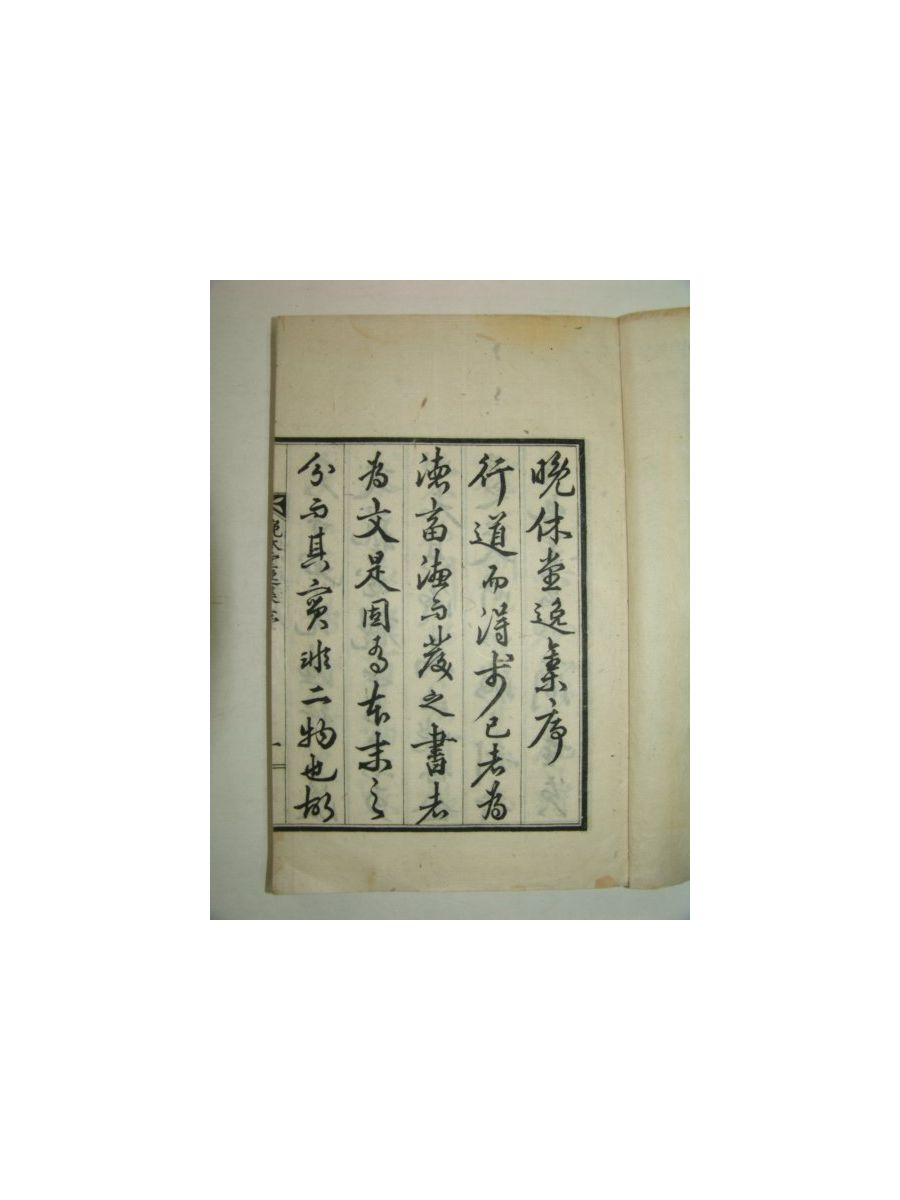 晩休堂逸藁序
行道而得於己者爲
德畜德而發之書者
爲文是固有本末之
分而其實非二物也故